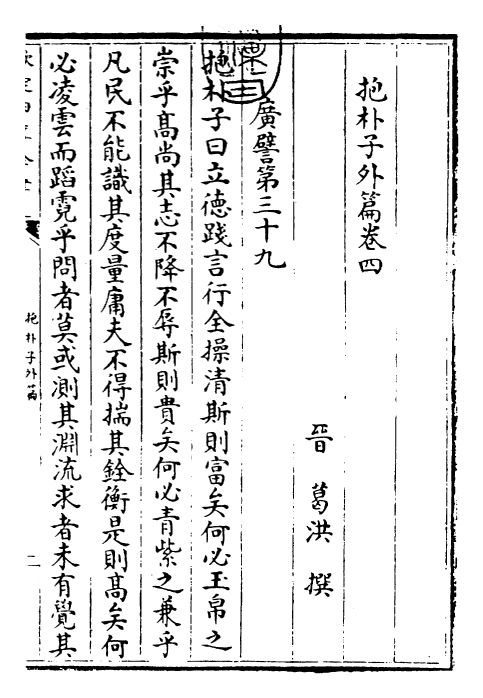 抱朴子外篇卷四
晉 葛洪 撰
廣譬第三十九
抱朴子曰立德踐言行全操清斯則富矣何必玉帛之
崇乎高尚其志不降不辱斯則貴矣何必青紫之兼乎
凡民不能識其度量庸夫不得揣其銓衡是則高矣何
必凌雲而蹈霓乎問者莫或測其淵流求者未有覺其
抱朴子外篇
二